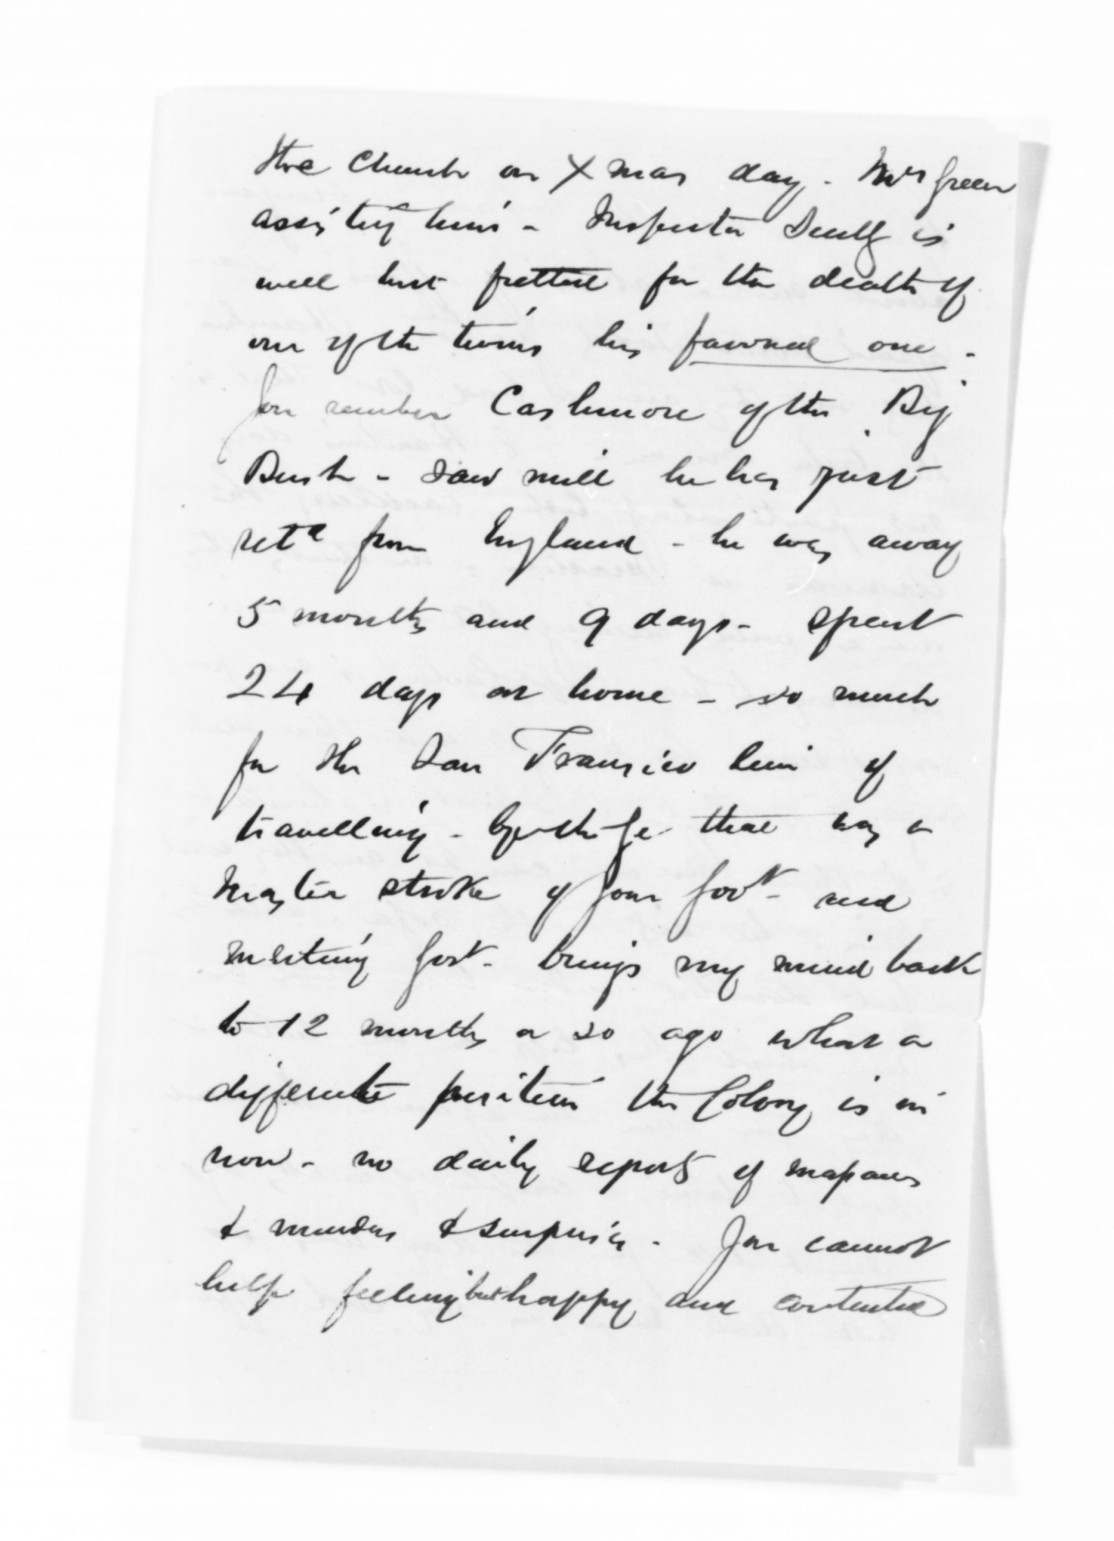 the Church on Xmas day - Mrs Green
assisting him - Inspector Scully is
well but frettee for the death of
one of the twins his favored one -
You rember Cashmore of the Big
Bush - Saw mill he has just
retd from England - he was away
5 months and 9 days - spent
24 days at home - so much
for the San Francisco line of
travelling - by the Ge that was a
Master stroke of your Govt - and
mentioning Govt - brings my mind back
to 12 months or so ago what a
different position the Colony is in
now - no daily reports of
& murders & surprises - You cannot
help feeling but happy and contented